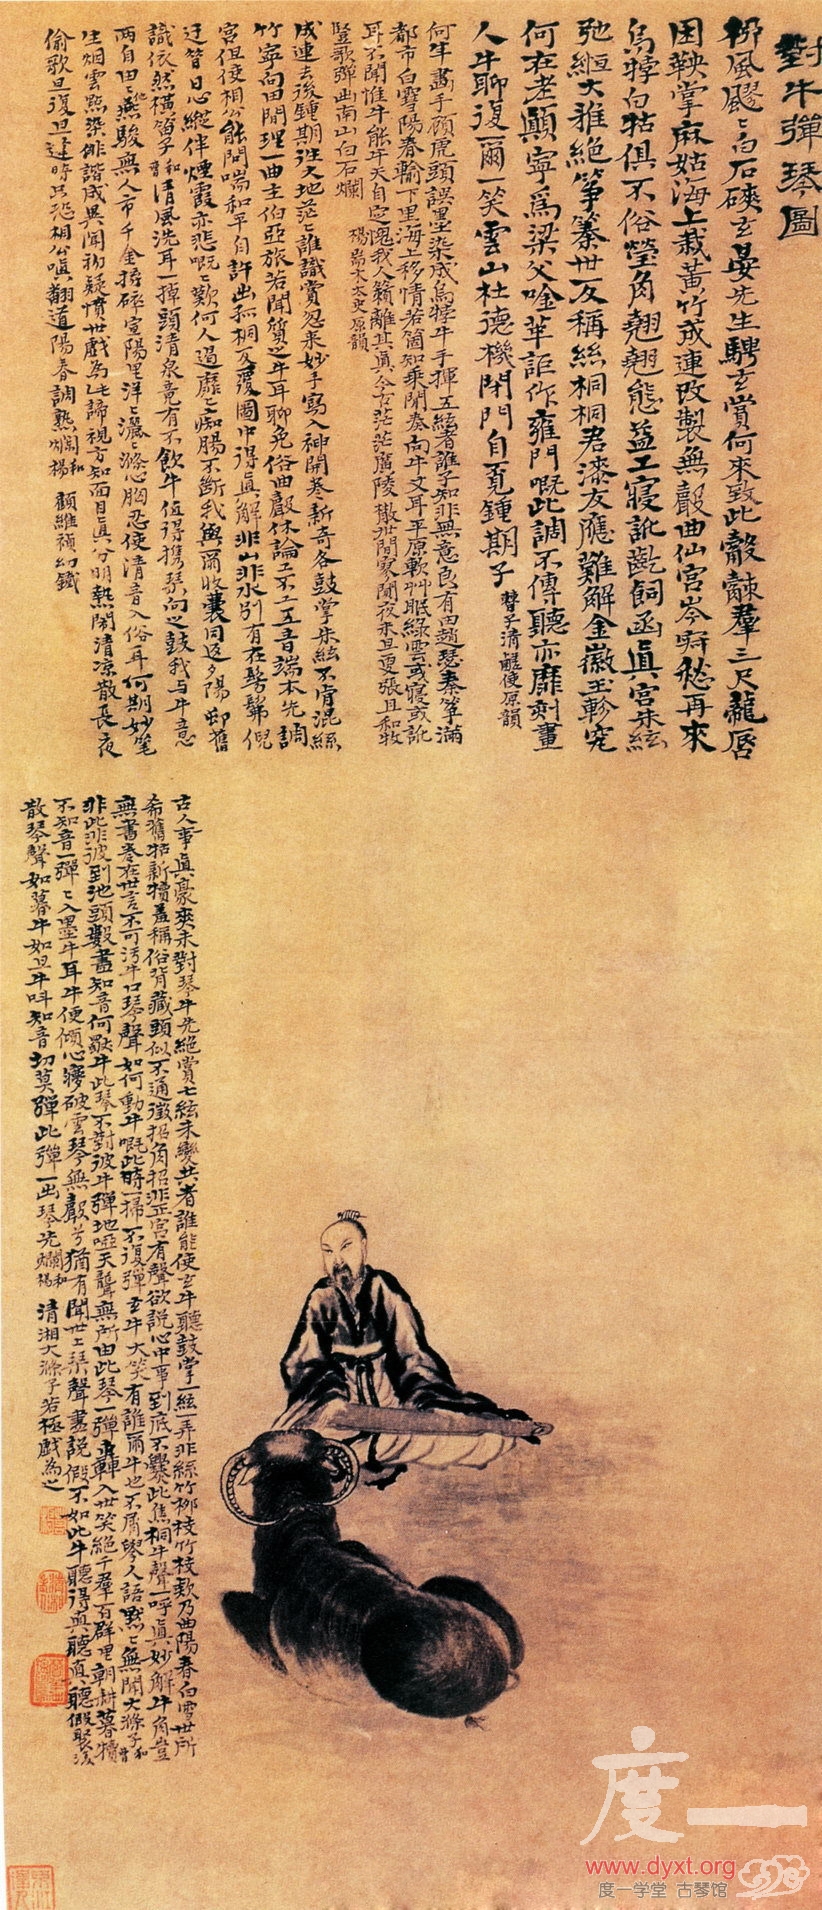 對牛彈琴圖
柳風颼〻白石磢玄晏先生騁玄賞何來致此觳觫羣三尺龍脣
困鞅掌麻姑海上栽黃竹成連改製無聲曲仙宮岑寂愁再來
烏犉白牯俱不俗瑩角翹翹態益工寢訛齕飼函眞宮朱絃
弛縆大雅絕箏蓁世反稱絲桐桐君漆友應難解金徽玉軫究
何在老顛寧爲梁父唫莘詎作雍門嘅此調不傳聽亦靡刻畫
人牛聊復爾一笑雲山杜德機閉門自覓鍾期子 曹子清鹺使原韻
何年畫手顧虎頭誤墨染成烏牸牛手揮五絃者誰子知非無意良有由趙瑟秦箏滿
都市白雪陽春輸下里海上移情若箇知乘閒奏向牛丈耳平原軟艸眠綠雲或寢或訛
耳不聞惟牛能牛天自定愧我人籟離其眞今古茫茫廣陵散世間寥闃夜未旦更張且和牧
豎歌彈出南山白石爛 楊耑木太史原韻
成連去後鍾期往大地茫〻誰識賞忽來妙手寫入神開卷新奇各鼓掌朱絃不肯混絲
竹寧向田間理一曲主伯亞旅若聞質之牛耳聊免俗曲聲休論工不工五音端本先調
宮但使相公能問喘和平自許出孤桐反覆圖中得眞解非山非水別有在髣髴倪
迂答日心縱伴煙霞亦悲嘅〻歎何人過靡〻癡腸不斷我與爾收囊同返夕陽邨舊
識依然橫笛子 和曹 清風洗耳一掉頭清泉竟有不飲牛值得攜琴向之鼓我與牛意
兩自由〻燕駿無人市千金擲碎宣陽里洋〻灑〻滌心胸忍使清音入俗耳何期妙筆
生烟雲點染俳諧成異聞初疑憤世戲為此諦視方知面目眞分明熱鬧清凉散長夜
偷歌旦復旦逢時只恐相公嗔翻道陽春調熟爛 和楊 顧維禎幻鐵
古人事眞豪爽未對琴牛先絕賞七絃未變共者誰能使玄牛聽鼓掌一絃一弄非絲竹柳枝竹枝欸乃曲陽春白雪世所
希舊牯新犢羞稱俗背藏頭似不通徵招角招非正宮有聲欲說心中事到底不爨此焦桐牛聲一呼眞妙解牛角豈
無書卷在世言不可污牛口琴聲如何動牛嘅此時一掃不復彈玄牛大笑有誰爾牛也不屑學人語默〻無聞大滌子 和曹
非此非彼到池頭數盡知音何獨牛此琴不對彼牛彈地啞天聾無所由此琴一彈轟入世笑絕千羣百群里朝耕暮犢
不知音一彈〻入墨牛耳牛便傾心夢破雲琴無聲兮猶有聞世上琴聲盡說假不如此牛聽得眞聽眞聽假聚復
散琴聲如暮牛如旦牛叫知音切莫彈此彈一出琴先爛 和楊 清湘大滌子若極戲為之
度一
www.dyxt.org
度一学堂 古琴馆